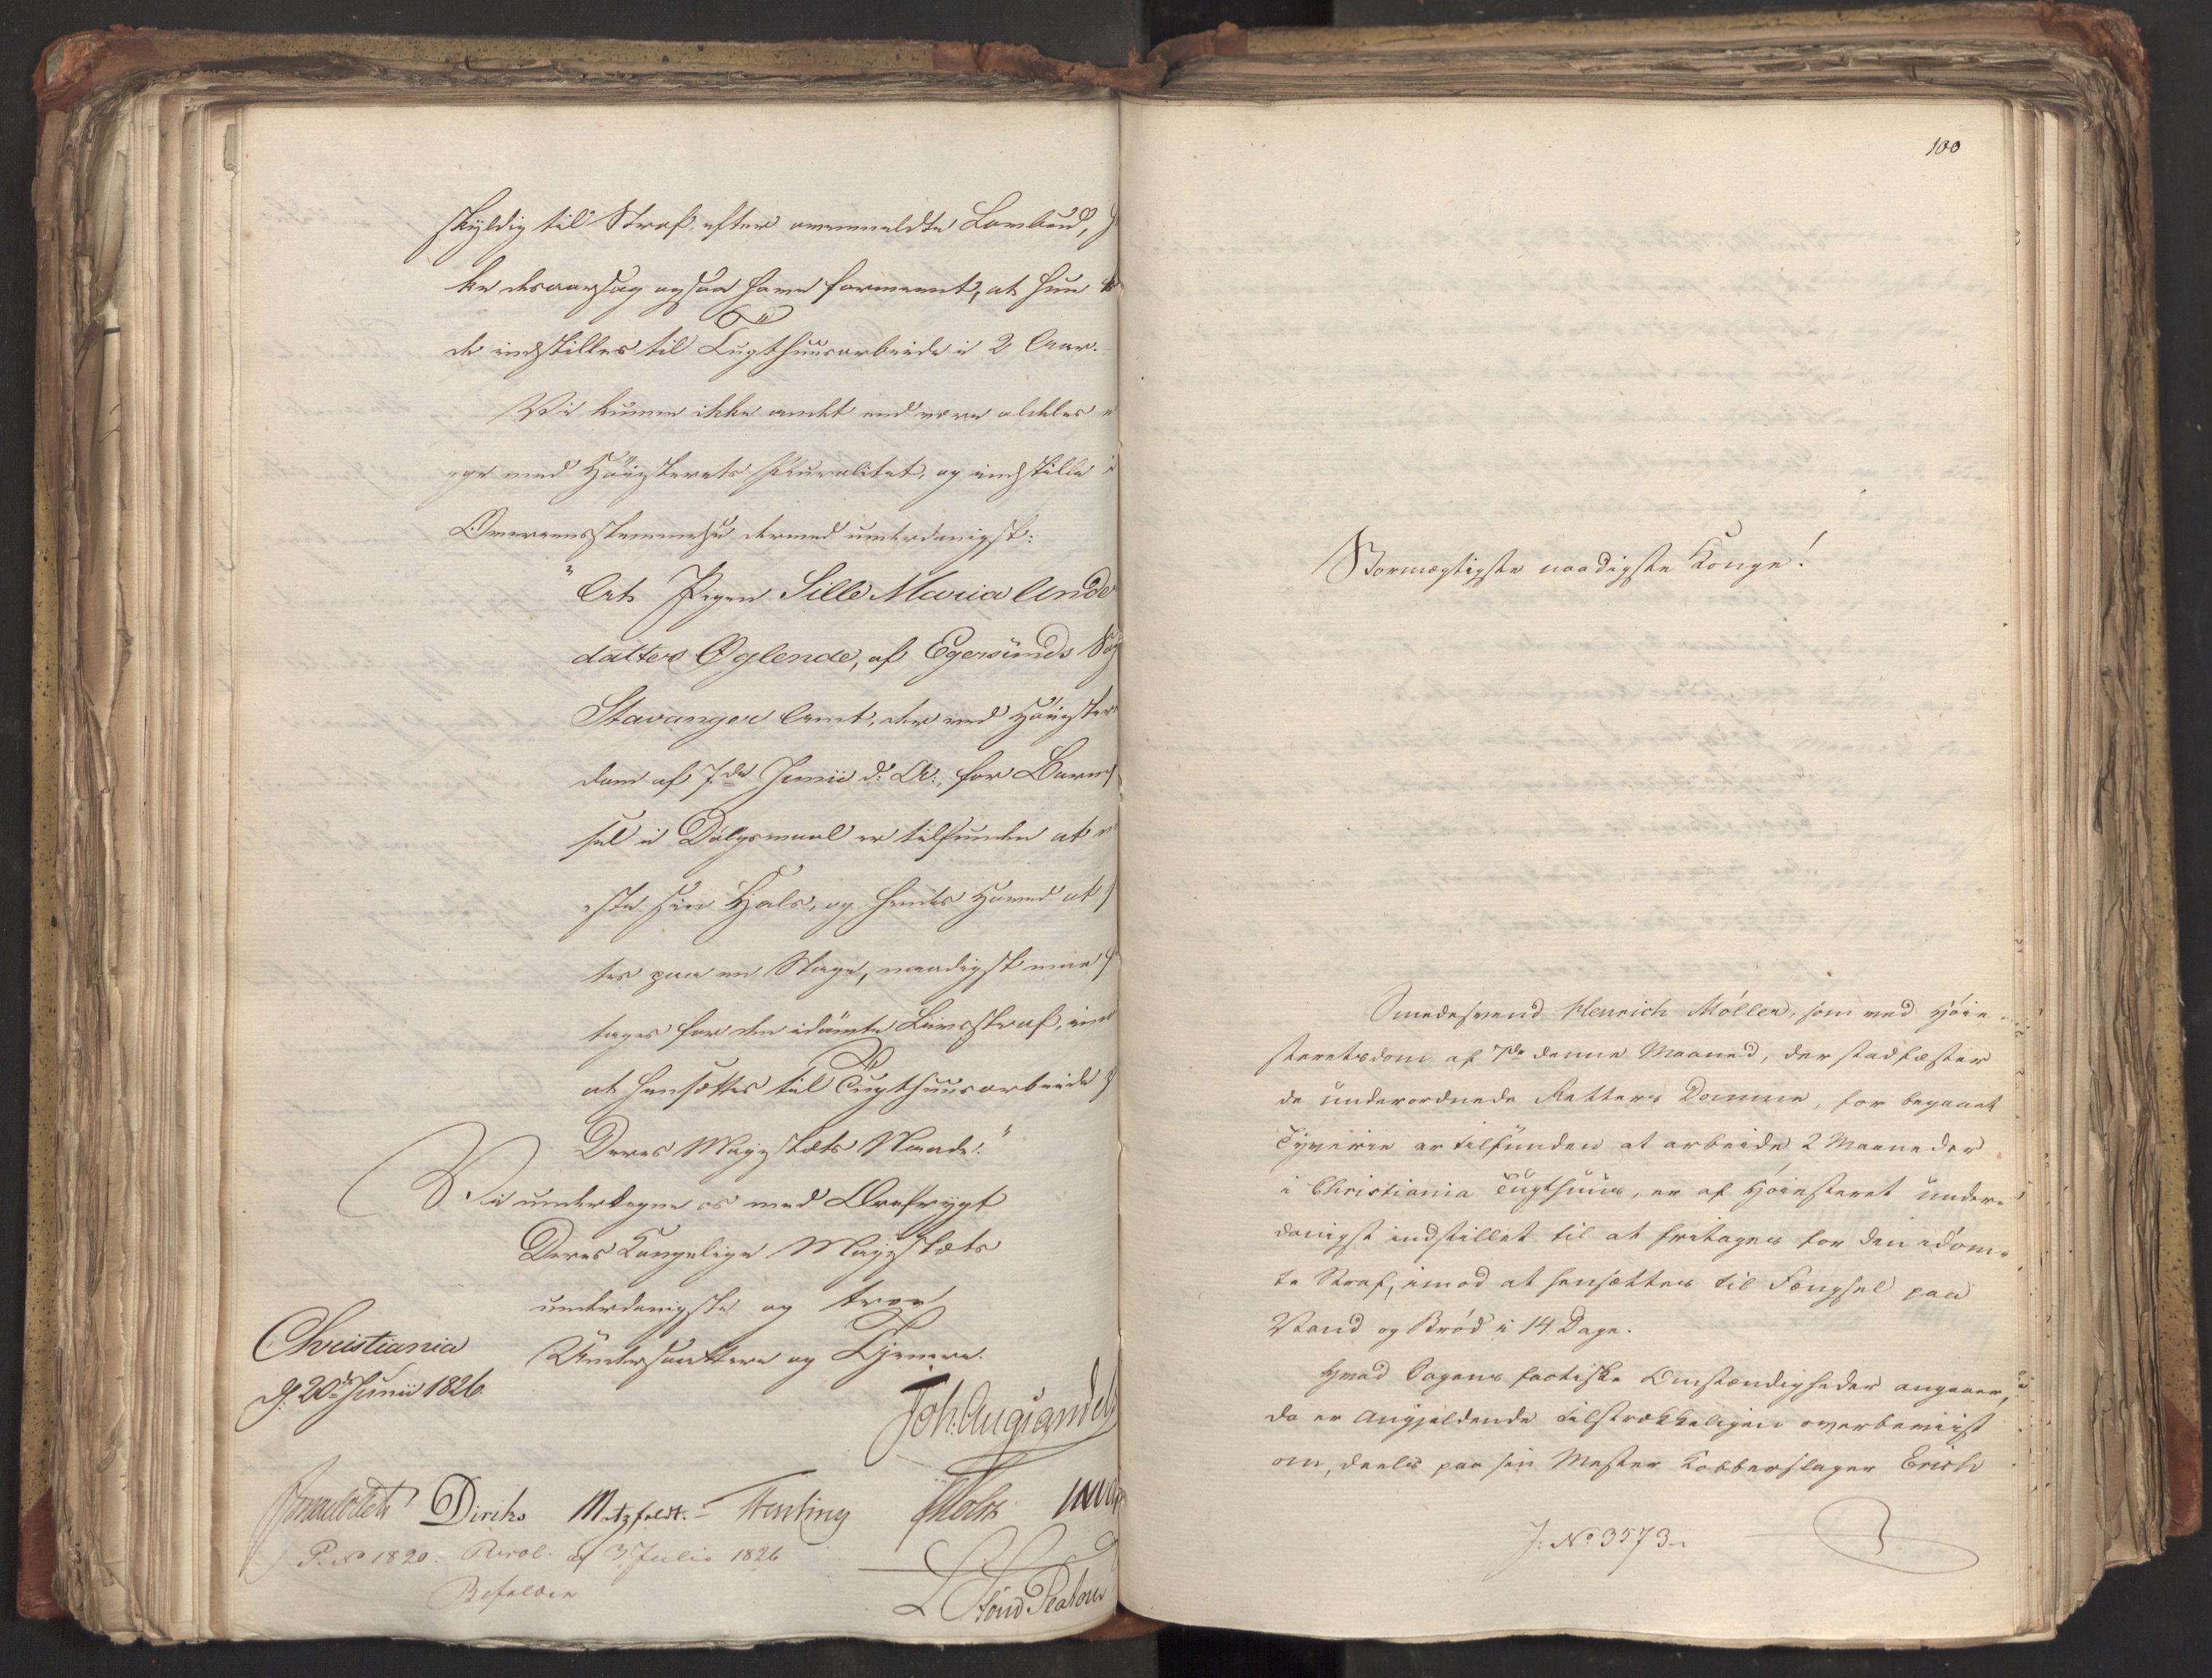 skyldig til Straf efter ovenmeldte Lovbud,
ke desaarsag ogsaa have formeent, at hun
de indstilles til Tugthuusarbeide i 2 Aar.
Vi kunne ikke andet end være aldeles
ige med Höiesterets Pluralitet, og indstille i
Overeensstemmelse dermed underdanigst:
"At Pigen Sille Maria Ande
datter Oglende, af Egersunds Sog
Stavanger Amt, der ved Höiester
dom af 7de Junii d: A:, for Barnf
sel i Dölgsmaal er tilfunden at
iste sin Hals, og hendes Hoved at
tes paa en Stage, naadigst maa
tages for den idömte Livsstraf, imod
at hensættes til Tugthuusarbeide
Deres Majestæts Naade."
Vi undertegne os med Ærefrygt
Deres Kongelige Majestæts
underdanigste og troe
Undersaattere og Tjenere.
Christiania
d. 20de Junii 1826.
Joh. Aug: Sandels
Diriks Motzfeldt. Fasting Holst
P. No 1820. Resol. af 3 Julii 1826
Bifalden
100
Stormægtigste naadigste Konge!
Smedesvend Henrich Möller, som ved Höie-
steretsdom af 7de denne Maaned, der stadfæster
de underordnede Retters Domme, for begaaet
Tyverie er tilfunden at arbeide 2 Maaneder
i Christiania Tugthuus, er af Höiesteret under-
danigst indstillet til at fritages for den idöm-
te Straf, imod at hensættes til Fængsel paa
Vand og Bröd i 14 Dage.
Hvad Sagens factiske Omstændigheder angaaer,
da er Angjeldende tilstrækkeligen overbeviist
om, deels paa sin Mester Kobberslager Erich
J: No 3573.